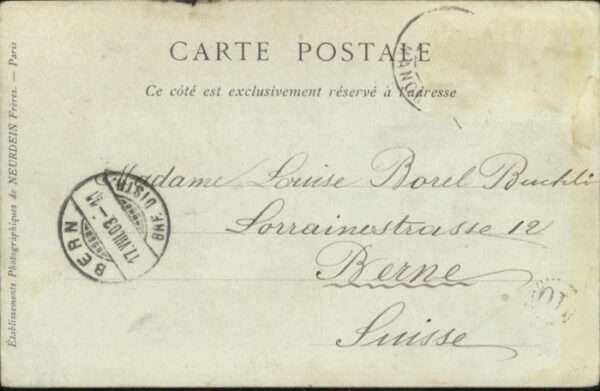 CARTE POSTALE
Ce côté est exclusivement réservé à l'adresse
Madame Louise Borel Buchli
Lorrainestrasse 12
Berne
Suisse
BERN
17.VIII.03.-11
Établissements Photographiques de NEURDEIN Frères. — Paris